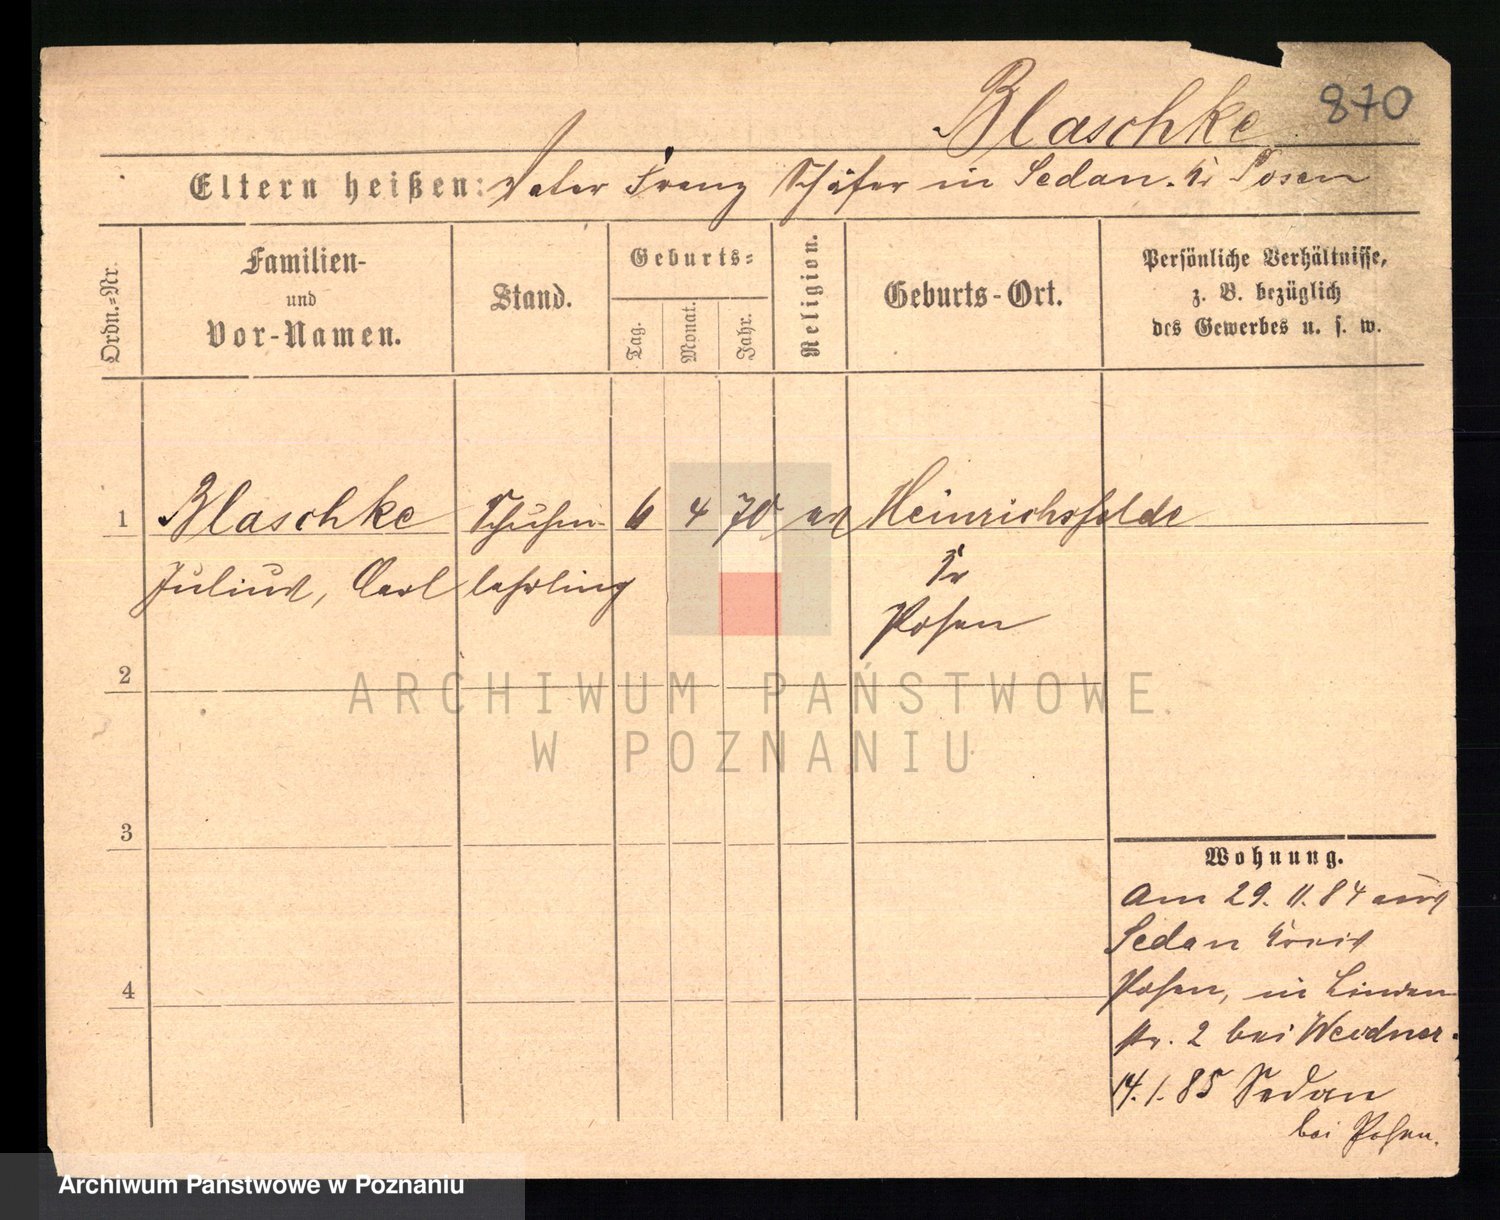 Blaschke 870
Eltern heißen: Vater Franz Schäfer in Sedan. Kr Posen
Ordn.=Nr.
Familien-
und
Vor-Namen.
Stand.
Geburts=
Tag.
Monat.
Jahr.
Religion.
Geburts-Ort.
Persönliche Verhältnisse,
z. B. bezüglich
des Gewerbes u. s. w.
1 Blaschke Schuhm 6 4 70 ev Heinrichsfelde
Julius, Carl lehrling Kr
Posen
2
3
4
Wohnung.
Am 29. 11. 84 aus
Sedan Kreis
Posen, in Linden
str. 2 bei Weidner.
14. 1. 85 Sedan
bei Posen.
ARCHIWUM PAŃSTWOWE
W POZNANIU
Archiwum Państwowe w Poznaniu